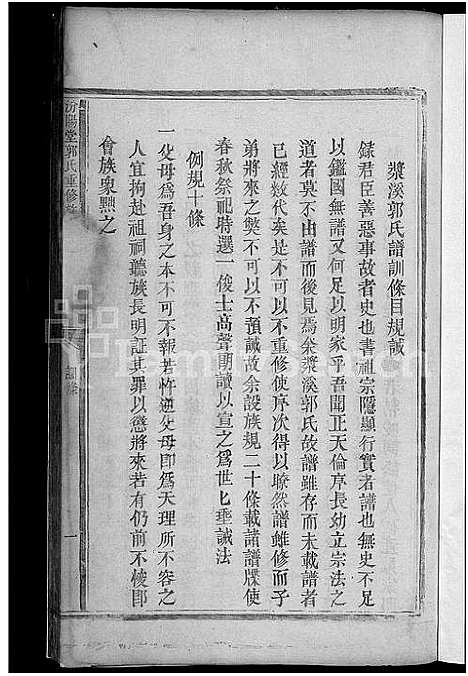 漿溪郭氏譜訓條目規誡
錄君臣善惡事故者史也書祖宗隱顯行實者譜也無史不足
以鑑國無譜又何足以明家乎吾聞正天倫序長幼立宗法之
道者莫不由譜而後見焉余漿溪郭氏故譜雖存而未載譜者
已經數代矣是不可以不重修使序次得以暸然譜雖修而子
弟將來之獘不可以不預誡故余設族規二十條載諸譜牒使
春秋祭祀時選一俊士高聲朗讀以宣之為世匕垂誡法
例規十條
一父母為吾身之本不可不報若忤逆父母即為天理所不容之
人宜拘赴祖祠聽族長明証其罪以懲將來若有仍前不悛即
會族衆黜之
汾陽堂郭氏重修
訓條
一